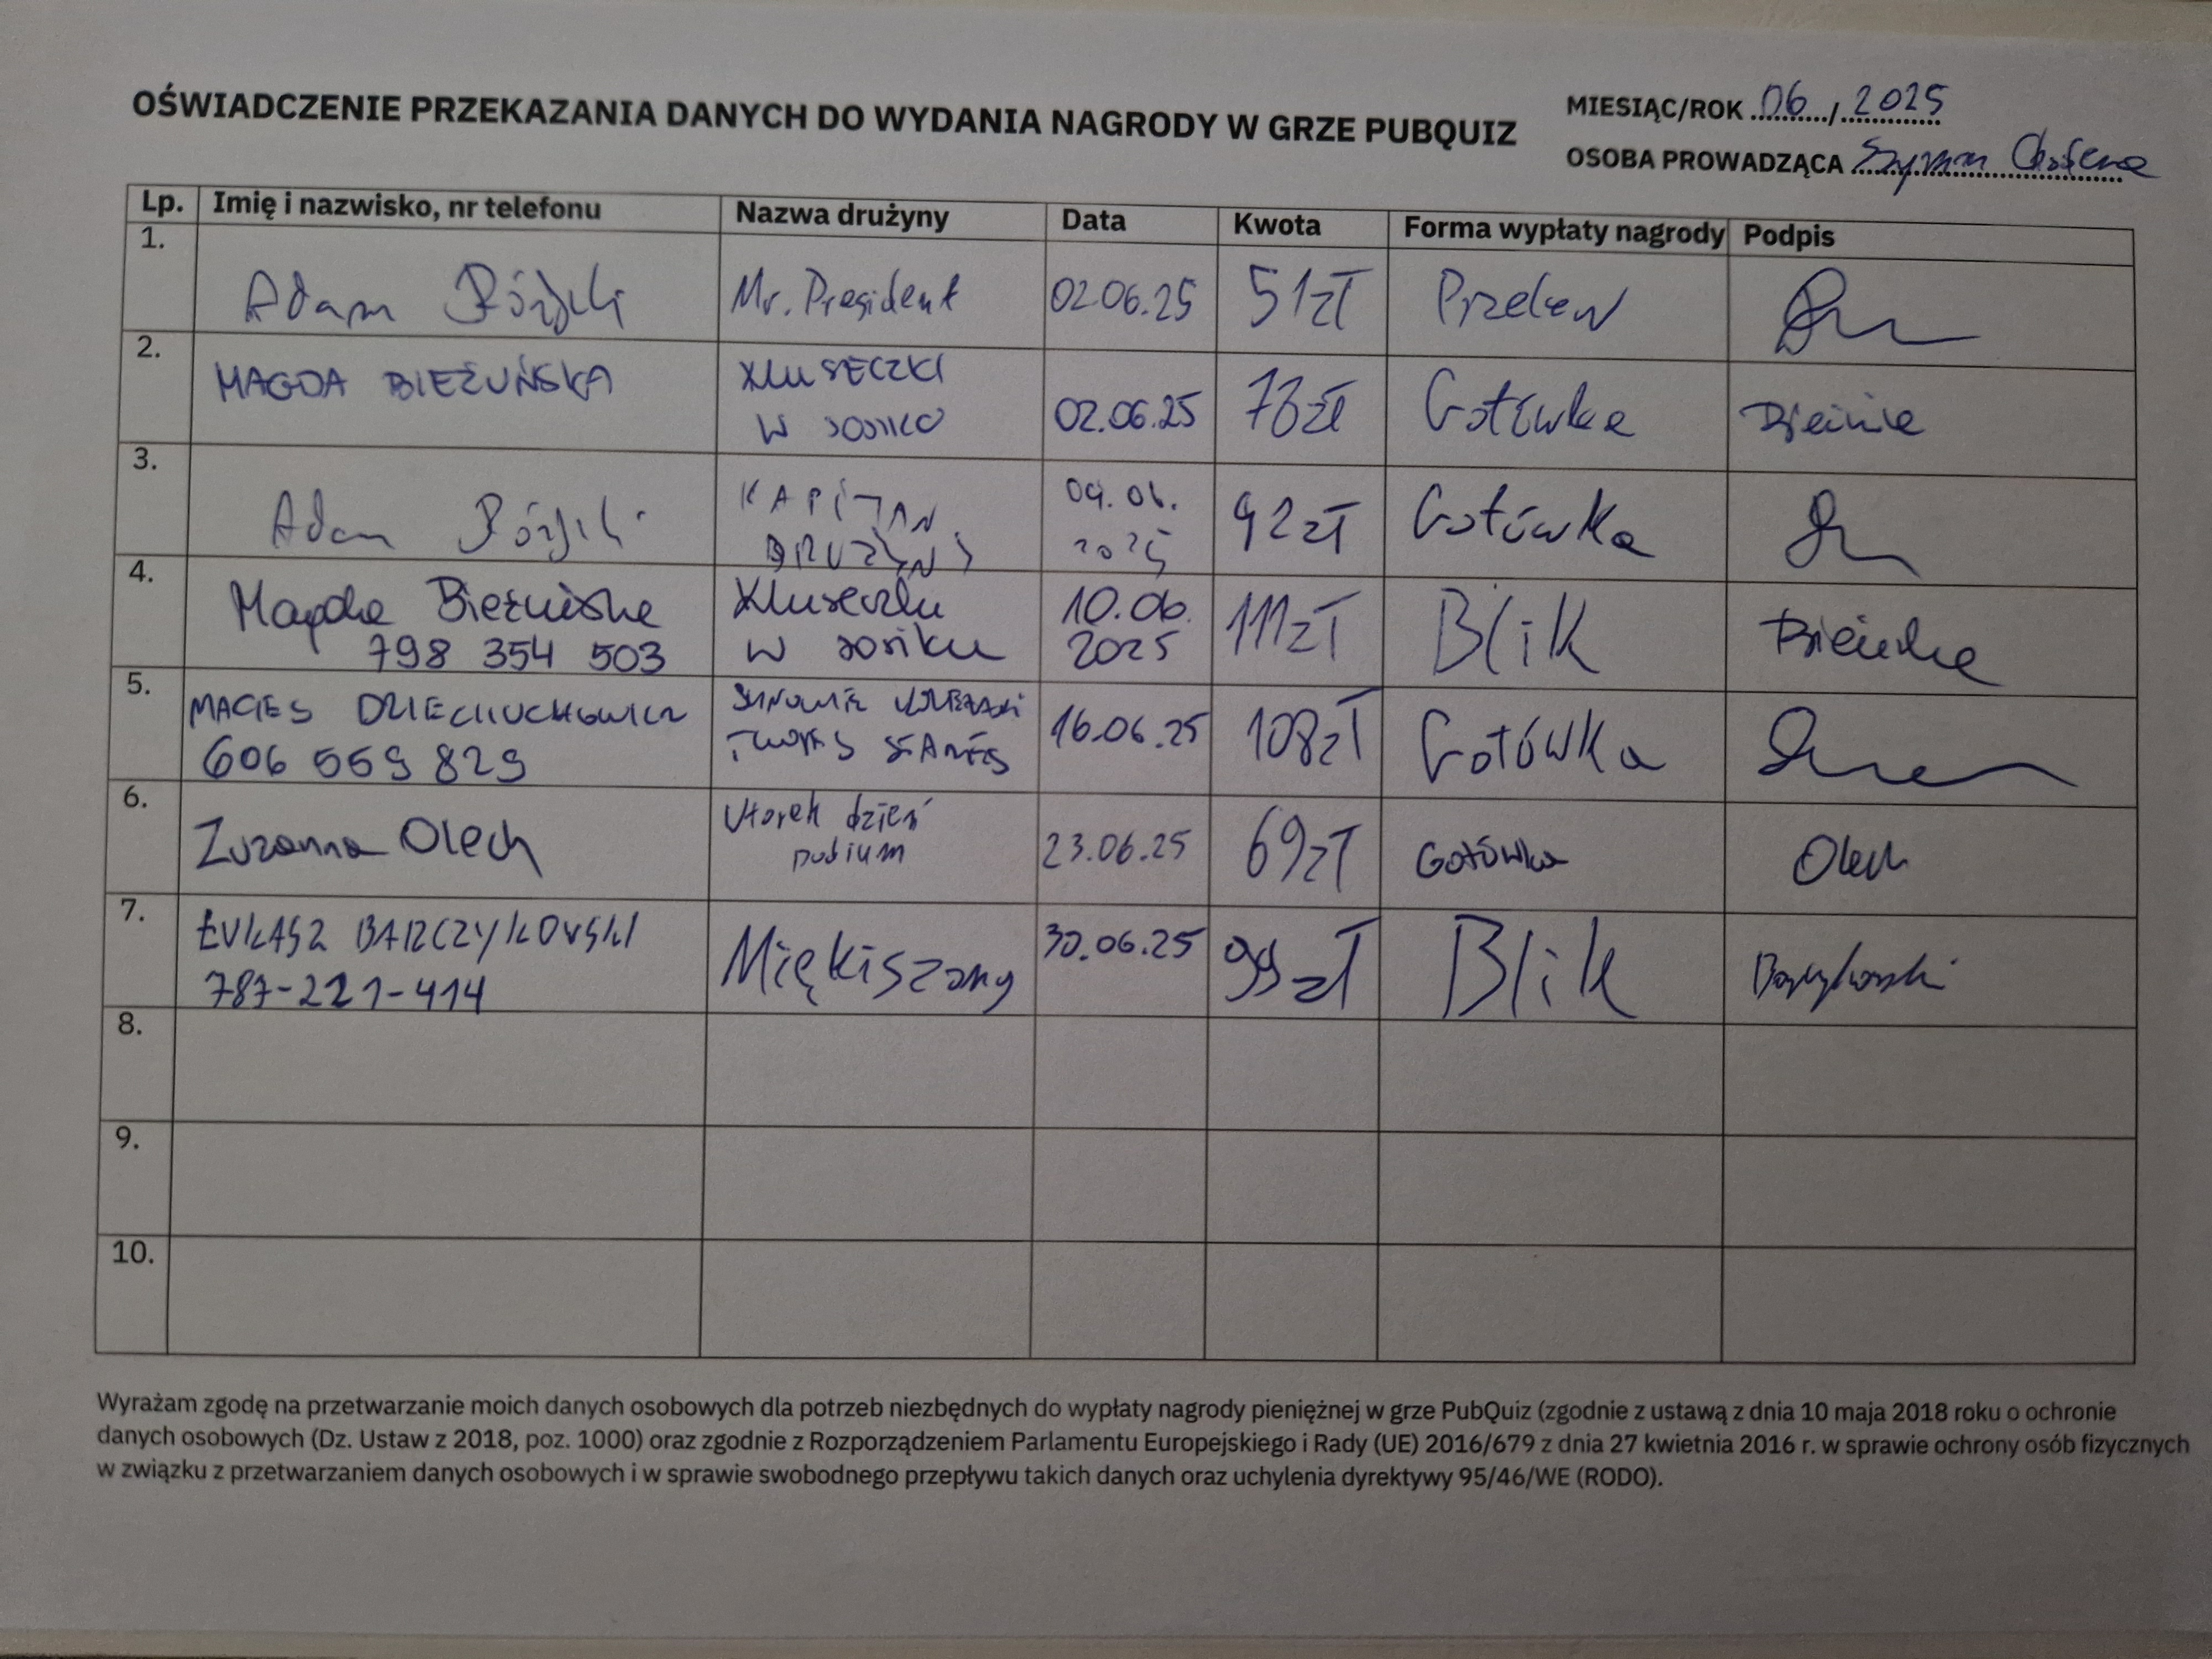 OŚWIADCZENIE PRZEKAZANIA DANYCH DO WYDANIA NAGRODY W GRZE PUBQUIZ
MIESIĄC/ROK 06/2025
OSOBA PROWADZĄCA Szymon
Lp. Imię i nazwisko, nr telefonu Nazwa drużyny Data Kwota Forma wypłaty nagrody Podpis
1. Adam Mr. President 02.06.25 51zł Przelew
2. MAGDA BIEŻUŃSKA KLUSECZKI
W SOSIKU 02.06.25 73zł Gotówka
3. Adam KAPITAN
DRUŻYNY 09.06.
2025 92zł Gotówka
4. Magda Bieżuńska
798 354 503 Kluseczki
w sosiku 10.06.
2025 111zł Blik
5. MACIEJ DZIECIUCHOWICZ
606 569 829 16.06.25 108zł Gotówka
6. Zuzanna Olech Wtorek dzień
podium 23.06.25 69zł Gotówka Olech
7. ŁUKASZ BARCZYKOWSKI
787-221-414 Miękiszony 30.06.25 99zł Blik
8.
9.
10.
Wyrażam zgodę na przetwarzanie moich danych osobowych dla potrzeb niezbędnych do wypłaty nagrody pieniężnej w grze PubQuiz (zgodnie z ustawą z dnia 10 maja 2018 roku o ochronie
danych osobowych (Dz. Ustaw z 2018, poz. 1000) oraz zgodnie z Rozporządzeniem Parlamentu Europejskiego i Rady (UE) 2016/679 z dnia 27 kwietnia 2016 r. w sprawie ochrony osób fizycznych
w związku z przetwarzaniem danych osobowych i w sprawie swobodnego przepływu takich danych oraz uchylenia dyrektywy 95/46/WE (RODO).